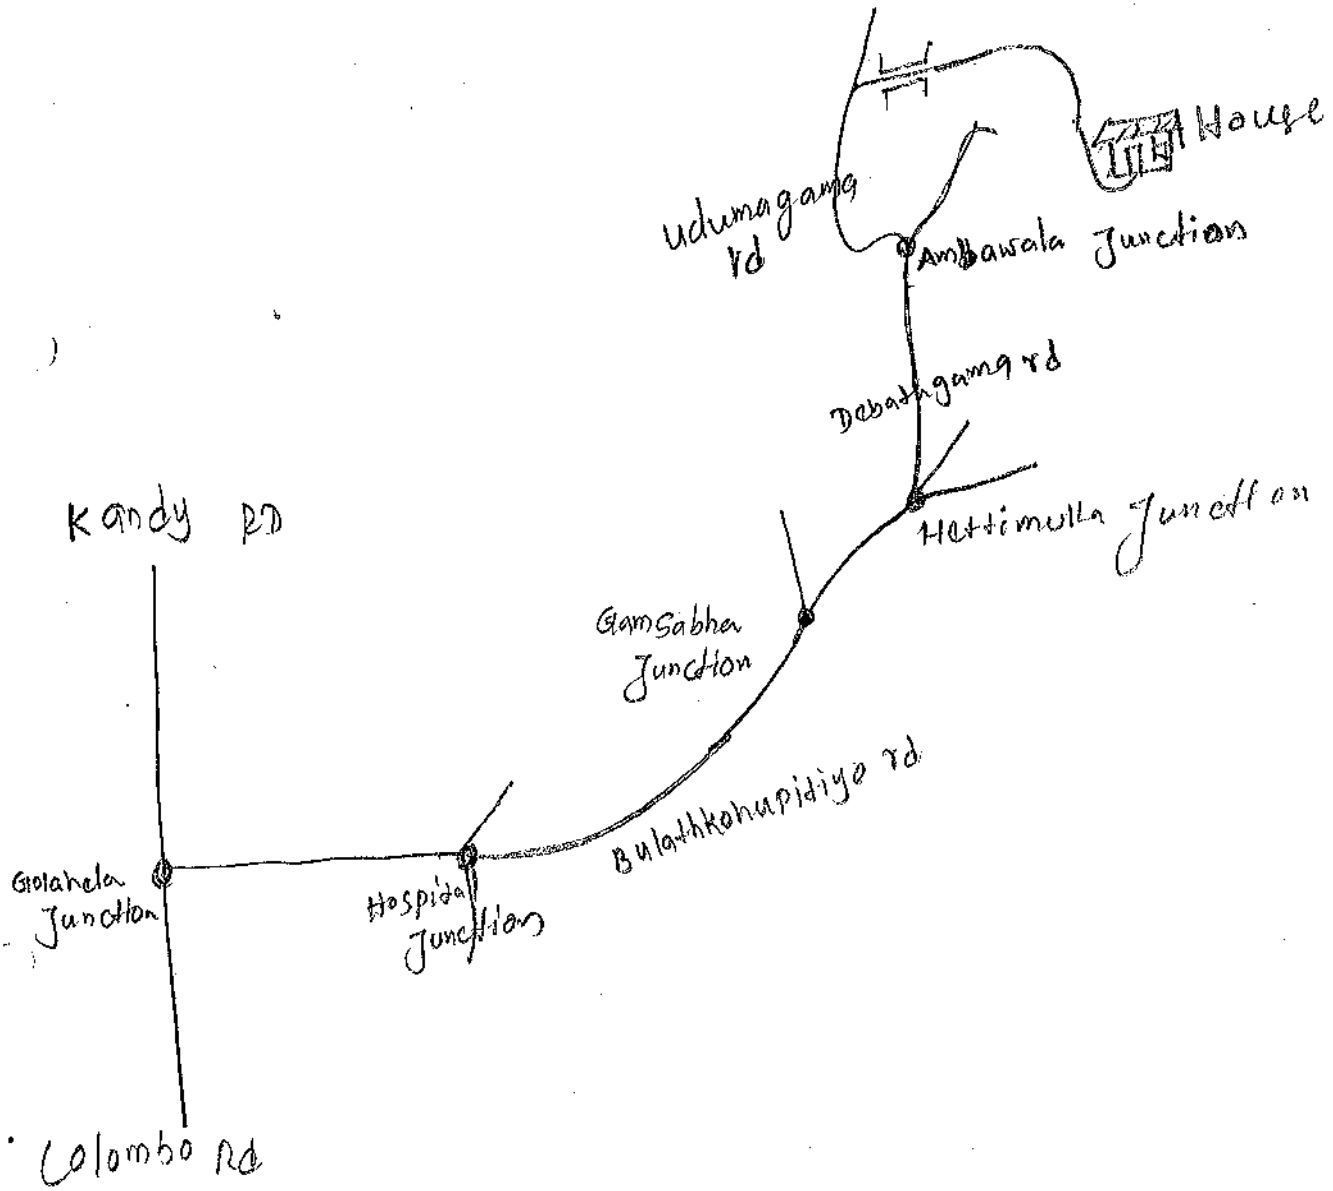 House
Udumagama
rd
Ambawala Junction
Debathgama rd
Kandy RD
Hettimulla Junction
Gamsabha
Junction
Bulathkohupitiya rd
Golahela
Junction
Hospital
Junction
Colombo Rd